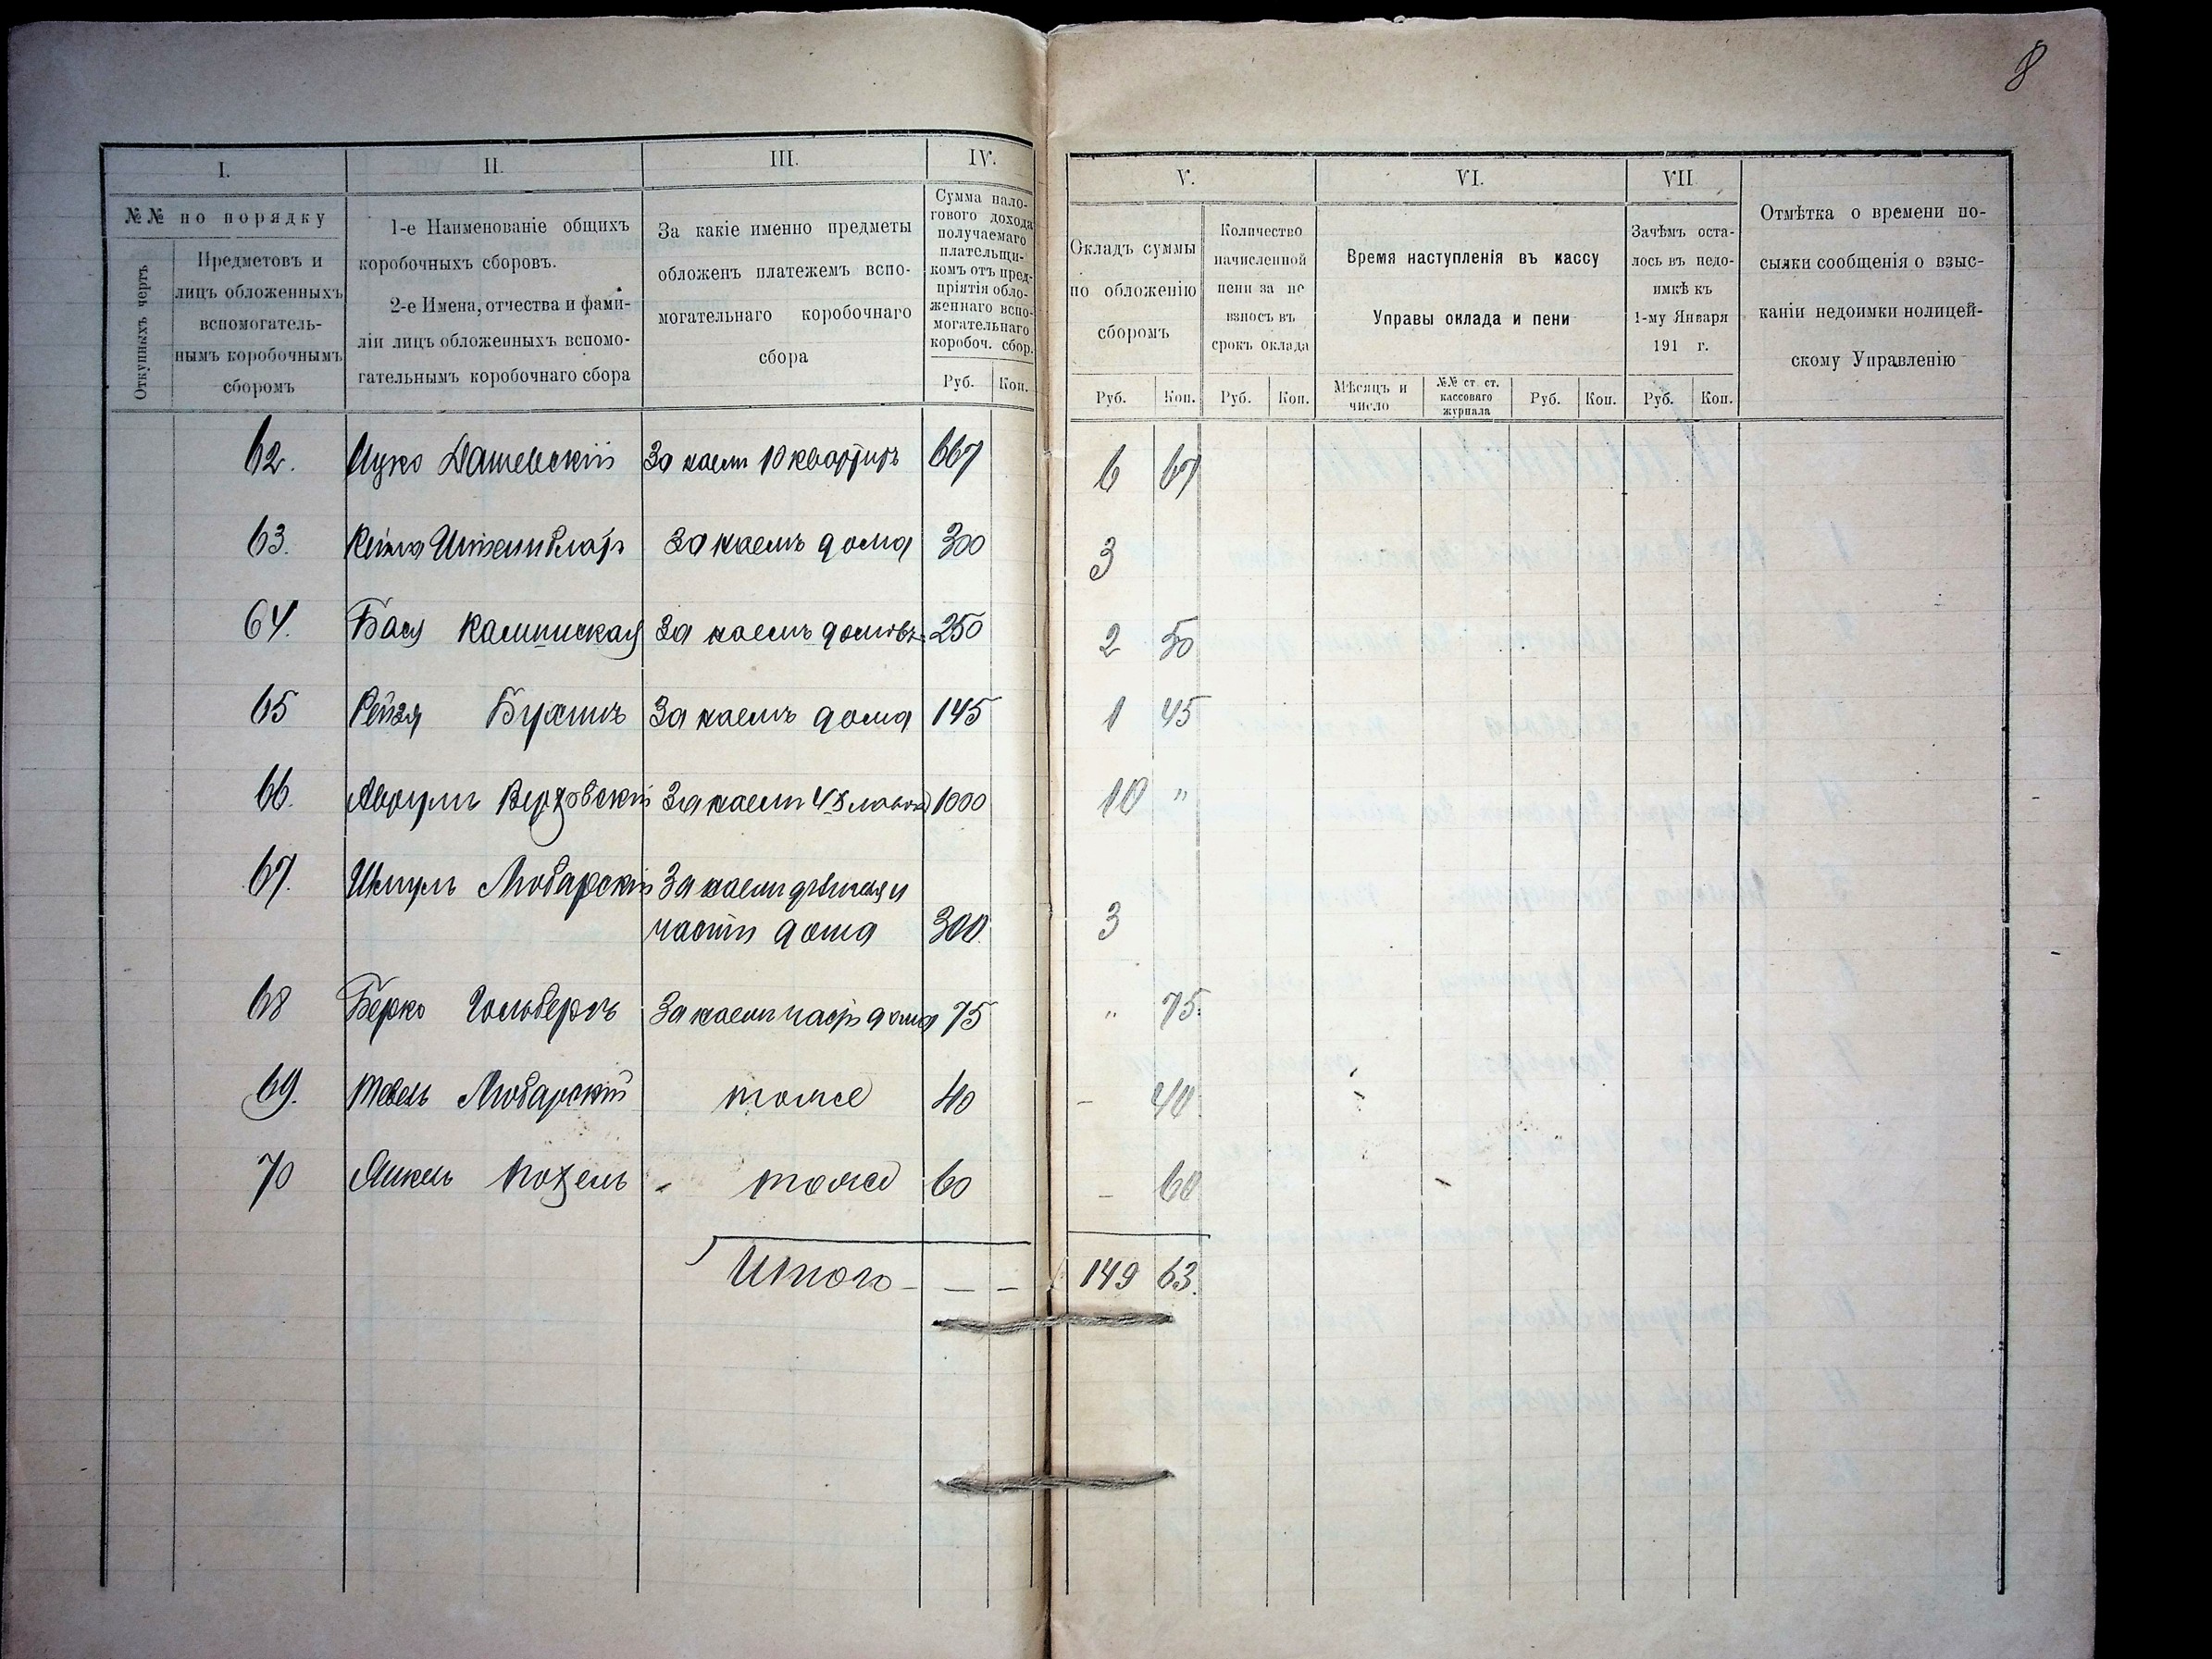 8
I.
II.
III.
IV.
V.
VI.
VII
№№ по порядку
Откупныхъ чертъ
Предметовъ и
лицъ обложенныхъ
вспомогатель-
нымъ коробочнымъ
сборомъ
1-е Наименованіе общихъ
коробочныхъ сборовъ.
2-е Имена, отчества и фами-
ліи лицъ обложенныхъ вспомо-
гательнымъ коробочнаго сбора
За какіе именно предметы
обложенъ платежемъ вспо-
могательнаго коробочнаго
сбора
Сумма нало-
гового дохода
получаемаго
плательщи-
комъ отъ пред-
пріятія обло-
женнаго вспо-
могательнаго
коробоч. сбор.
Руб. Коп.
Окладъ суммы
по обложенію
сборомъ
Руб. Коп.
Количество
начисленной
пени за не
взносъ въ
срокъ оклада
Руб. Коп.
Время наступленія въ кассу
Управы оклада и пени
Мѣсяцъ и
число
№№ ст. ст.
кассоваго
журнала
Руб. Коп.
Зачѣмъ оста-
лось въ недо-
имкѣ къ
1-му Января
191 г.
Руб. Коп.
Отмѣтка о времени по-
сылки сообщенія о взыс-
каніи недоимки полицей-
скому Управленію
62. Ицко Дашевскій За наем 10 квартиръ 667 6 67
63. За наемъ дома 300 3
64. Бася Каминская За наемъ домовъ 250 2 50
65 Рейзя Бухинъ За наемъ дома 145 1 45
66. Аврумъ Верховскій За наем 4х лавок 1000 10 "
67. Шмуль Любарскій За наем
части дома 300 3
68 Берко Гольбергъ За наем част дома 75 " 75
69. Тевель Любарскій тоже 40 - 40
70 Янкель тоже 60 - 60
Итого - - - 149 63.